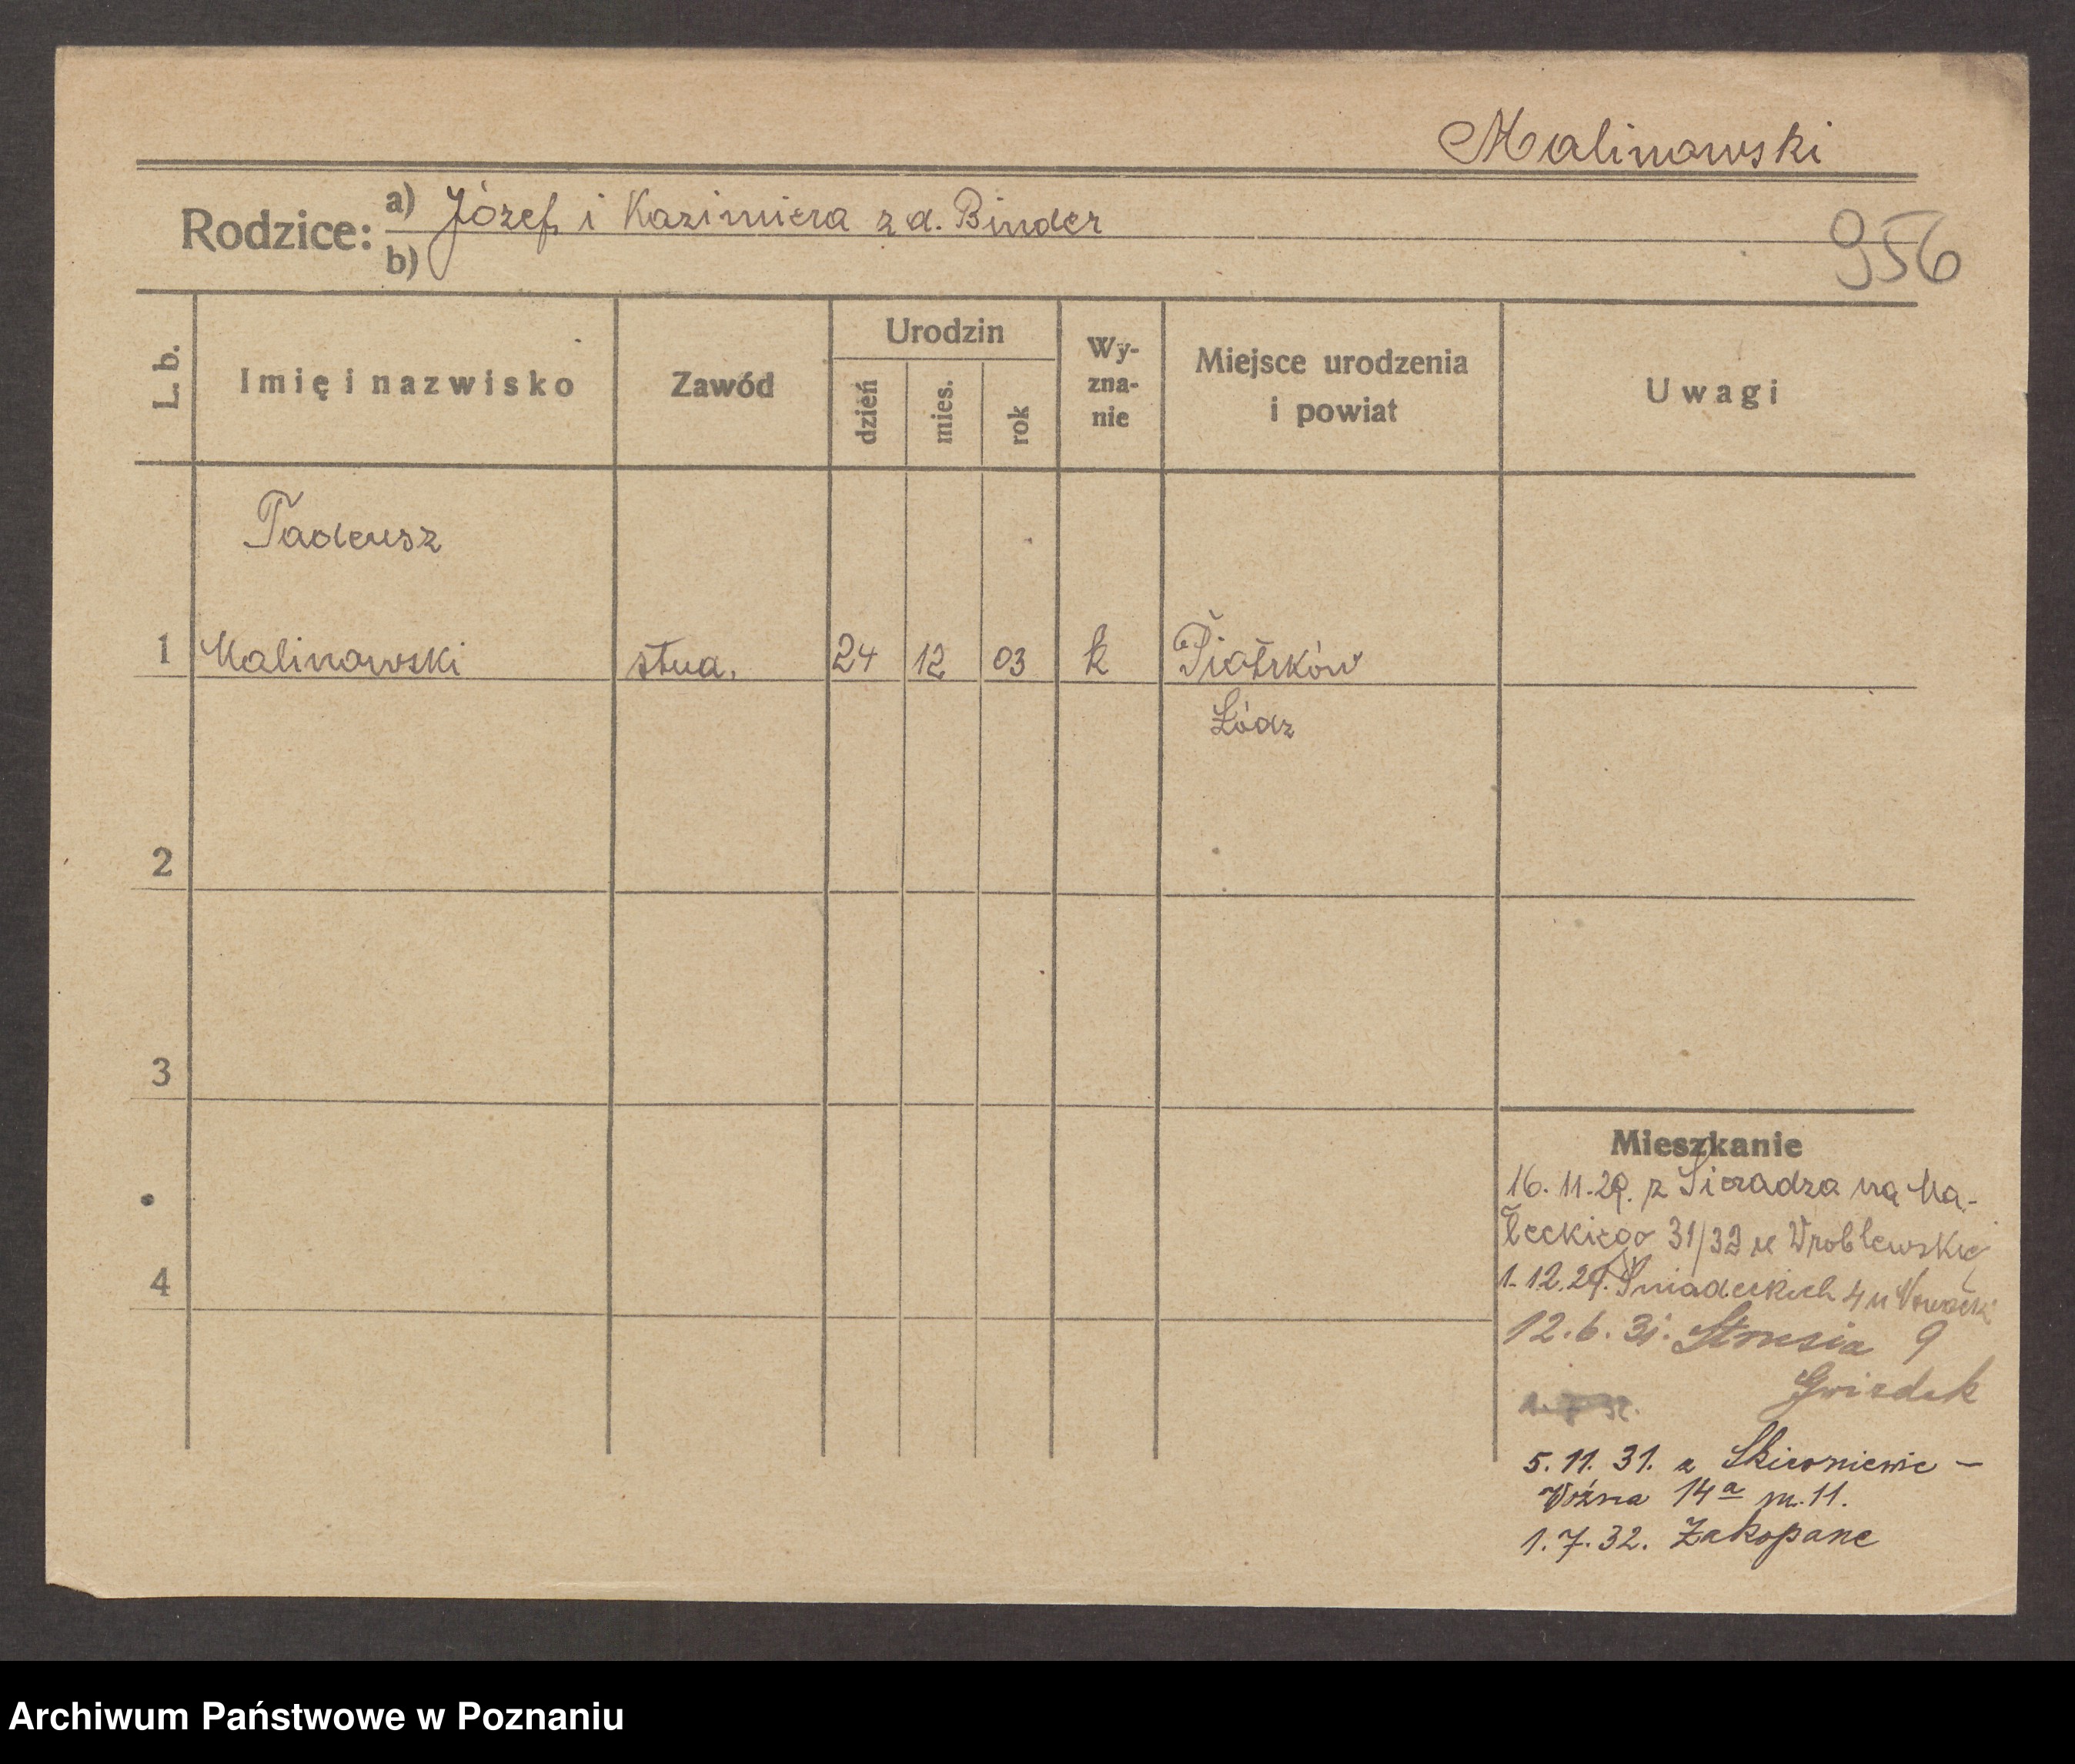 Malinowski
Rodzice: a) Józef i Kazimiera z d. Binder
b)
956
L. b. Imię i nazwisko Zawód Urodzin dzień mies. rok Wy-zna-nie Miejsce urodzenia i powiat Uwagi
Tadeusz
1 Malinowski stud. 24 12 03 k Piotrków
Łódz
2
3
Mieszkanie
16. 11. 29. z Sieradza na Ma-
łeckiego 31/32 u Wroblewskiej
4
1. 12. 29. Śniadeckich 4 u
12. 6. 31. 9
5. 11. 31. z Skierniewic –
Woźna 14a m. 11.
1. 7. 32. Zakopane
Archiwum Państwowe w Poznaniu